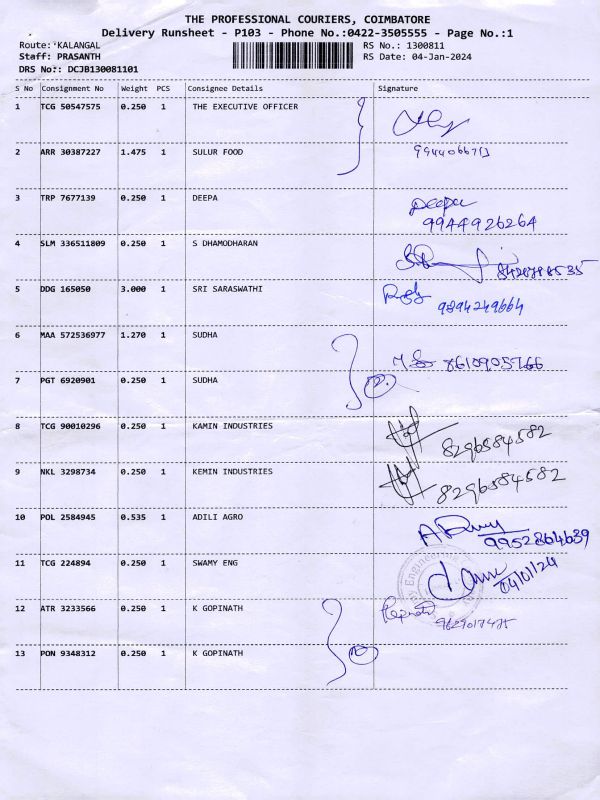 THE PROFESSIONAL COURIERS, COIMBATORE
Delivery Runsheet - P103 - Phone No.:0422-3505555 - Page No.:1
Route: KALANGAL RS No.: 1300811
Staff: PRASANTH RS Date: 04-Jan-2024
DRS No:: DCJB130081101
S No Consignment No Weight PCS Consignee Details Signature
1 TCG 50547575 0.250 1 THE EXECUTIVE OFFICER
2 ARR 30387227 1.475 1 SULUR FOOD
3 TRP 7677139 0.250 1 DEEPA Deepa
9944926264
4 SLM 336511809 0.250 1 S DHAMODHARAN
5 DDG 165050 3.000 1 SRI SARASWATHI
9894249664
6 MAA 572536977 1.270 1 SUDHA
8610905766
7 PGT 6920901 0.250 1 SUDHA
8 TCG 90010296 0.250 1 KAMIN INDUSTRIES 8296584582
9 NKL 3298734 0.250 1 KEMIN INDUSTRIES 8296584582
10 POL 2584945 0.535 1 ADILI AGRO
9952864639
11 TCG 224894 0.250 1 SWAMY ENG 04/01/24
12 ATR 3233566 0.250 1 K GOPINATH Gopinath
9629017475
13 PON 9348312 0.250 1 K GOPINATH